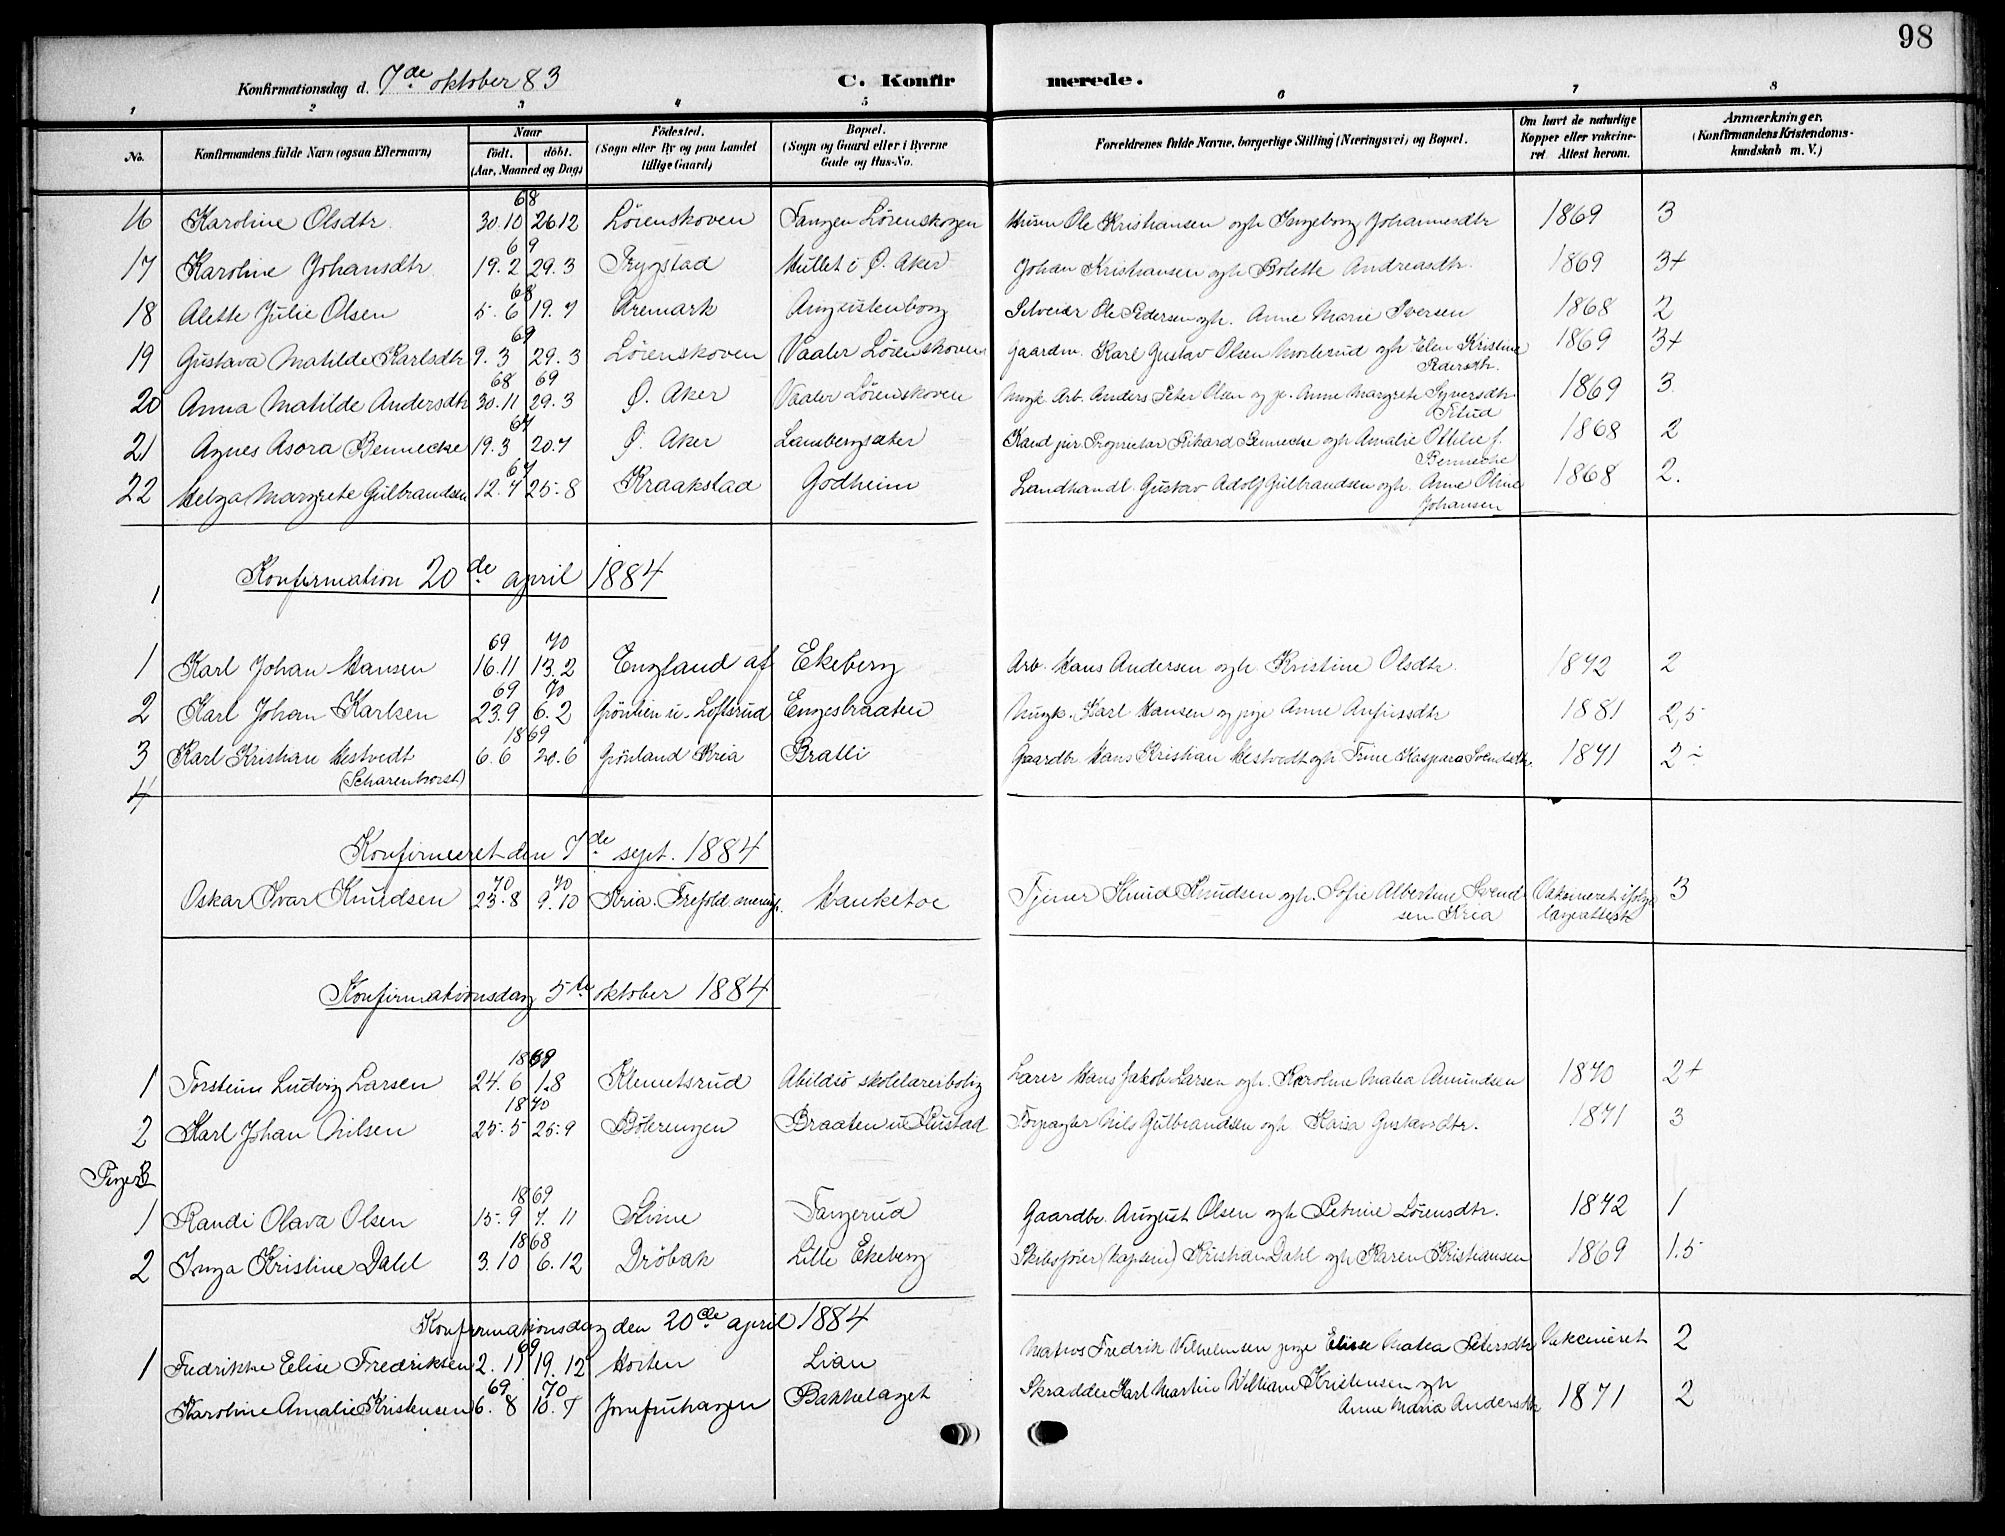 98
Konfirmationsdag d. 7de oktober 83 C. Konfirmerede.
1 2 3 4 5 6 7 8
No. Konfirmandens fulde Navn (ogsaa Efternavn) Naar födt. döbt. (Aar, Maaned og Dag) Födested. (Sogn eller By og paa Landet tillige Gaard) Bopæl. (Sogn og Gaard eller i Byerne Gade og Hus-No. Forældrenes fulde Navne, borgerlige Stilling (Næringsvei) og Bopæl. Om havt de naturlige Kopper eller vakcineret Attest herom. Anmærkninger. (Konfirmandens Kristendomskundskab m. V.)
68
16 Karoline Olsdtr 30.10 26.12 Lörenskoven Tangen Lörenskogen Husm Ole Kristiansen ogh Ingeborg Johannesdtr 1869 3
69
17 Karoline Johansdtr 19.2 29.3 Trygstad Hullet i Ø. Aker Johan Kristiansen ogh Bolette Andreasdtr. 1869 3+
68
18 Alette Julie Olsen 5.6 19.7 Aremark Augustenborg Ole Pedersen ogh. Anne Marie Iversen 1868 2
69
19 Gustava Matilde Karlsdtr 9.3 29.3 Lörenskoven Vaaler Lörenskoven Gaardm. Karl Gustav Olsen ogh Elen Kristine Pedersdtr. 1869 3+
68 69
20 Anna Matilde Andersdtr 30.11 29.3 Ø. Aker Vaaler Lörenskoven Ungk. Arb. Anders Peter Olsen og p. Anne Margrete Syversdtr 1869 3
67
21 Agnes Asora Bennecke 19.3 20.7 Ø. Aker Lambergsæter Kand jur. Proprietær Rikard Bennecke ogh Amalie Ottilie f. Bennecke 1868 2
67
22 Helga Margrete Gulbrandsen 12.7 25.8 Kraakstad Godheim Landhandl. Gustav Adolf Gulbrandsen ogh. Anne Oline Johansen 1868 2.
Konfirmation 20de april 1884
1
69 70
1 Karl Johan Hansen 16.11 13.2 England af Ekeberg Arb. Hans Andersen ogh Kristine Olsdtr. 1872 2
69 70
2 Karl Johan Karlsen 23.9 6.2 Grönlien u. Loftsrud Engesbraaten Ungk. Karl Hansen og pige Anne Anfinsdtr 1881 2,5
1869
3 Karl Kristian Hestvedt (Scharenhorst) 6.6 20.6 Grönland Kria Bralli Gaardbr Hans Kristian Hestvedt ogh Trine Kaspara Svendsdtr. 1871 2÷
4
Konfirmeret den 7de sept. 1884
70 70
Oskar Ivar Knudsen 23.8 9.10 Kria. Trefold. menigh. Hauketoe Tjener Knud Knudsen ogh. Sofie Albertine Svendsen Kria Vaksineret ifölge lægeattest 3
Konfirmationsdag 5te oktober 1884
1869
1 Torstein Ludvig Larsen 24.6 1.8 Klemetsrud Abildsö skolelærerbolig Lærer Hans Jakob Larsen ogh. Karoline Matea Amundsen 1870 2+
1870
2 Karl Johan Nilsen 25.5 25.9 Bölerengen Braaten u Rustad Nils Gulbrandsen ogh Kaisa Gustavsdtr. 1871 3
Piger
1869
1 Randi Olava Olsen 15.9 7.11 Slime Tangerud Gaardbr. August Olsen ogh Petrine Lörensdtr. 1872 1
1868
2 Inga Kristine Dahl 3.10 6.12 Dröbak Lille Ekeberg Skibsförer (kaptein) Kristian Dahl ogh Karen Kristiansen 1869 1.5
Konfirmationsdag den 20de april 1884
69
1 Fredrikke Elise Fredriksen 2.11 19.12 Horten Lian Matros Fredrik Vilhelmsen pige Elise Matea Petersdtr Vakcineret 2
69 70
Karoline Amalie Kristensen 6.8 10.7 Jomfruhagen Bækkelaget Skrædder Karl Martin William Kristensen ogh Anne Maria Andersdtr 1871 2